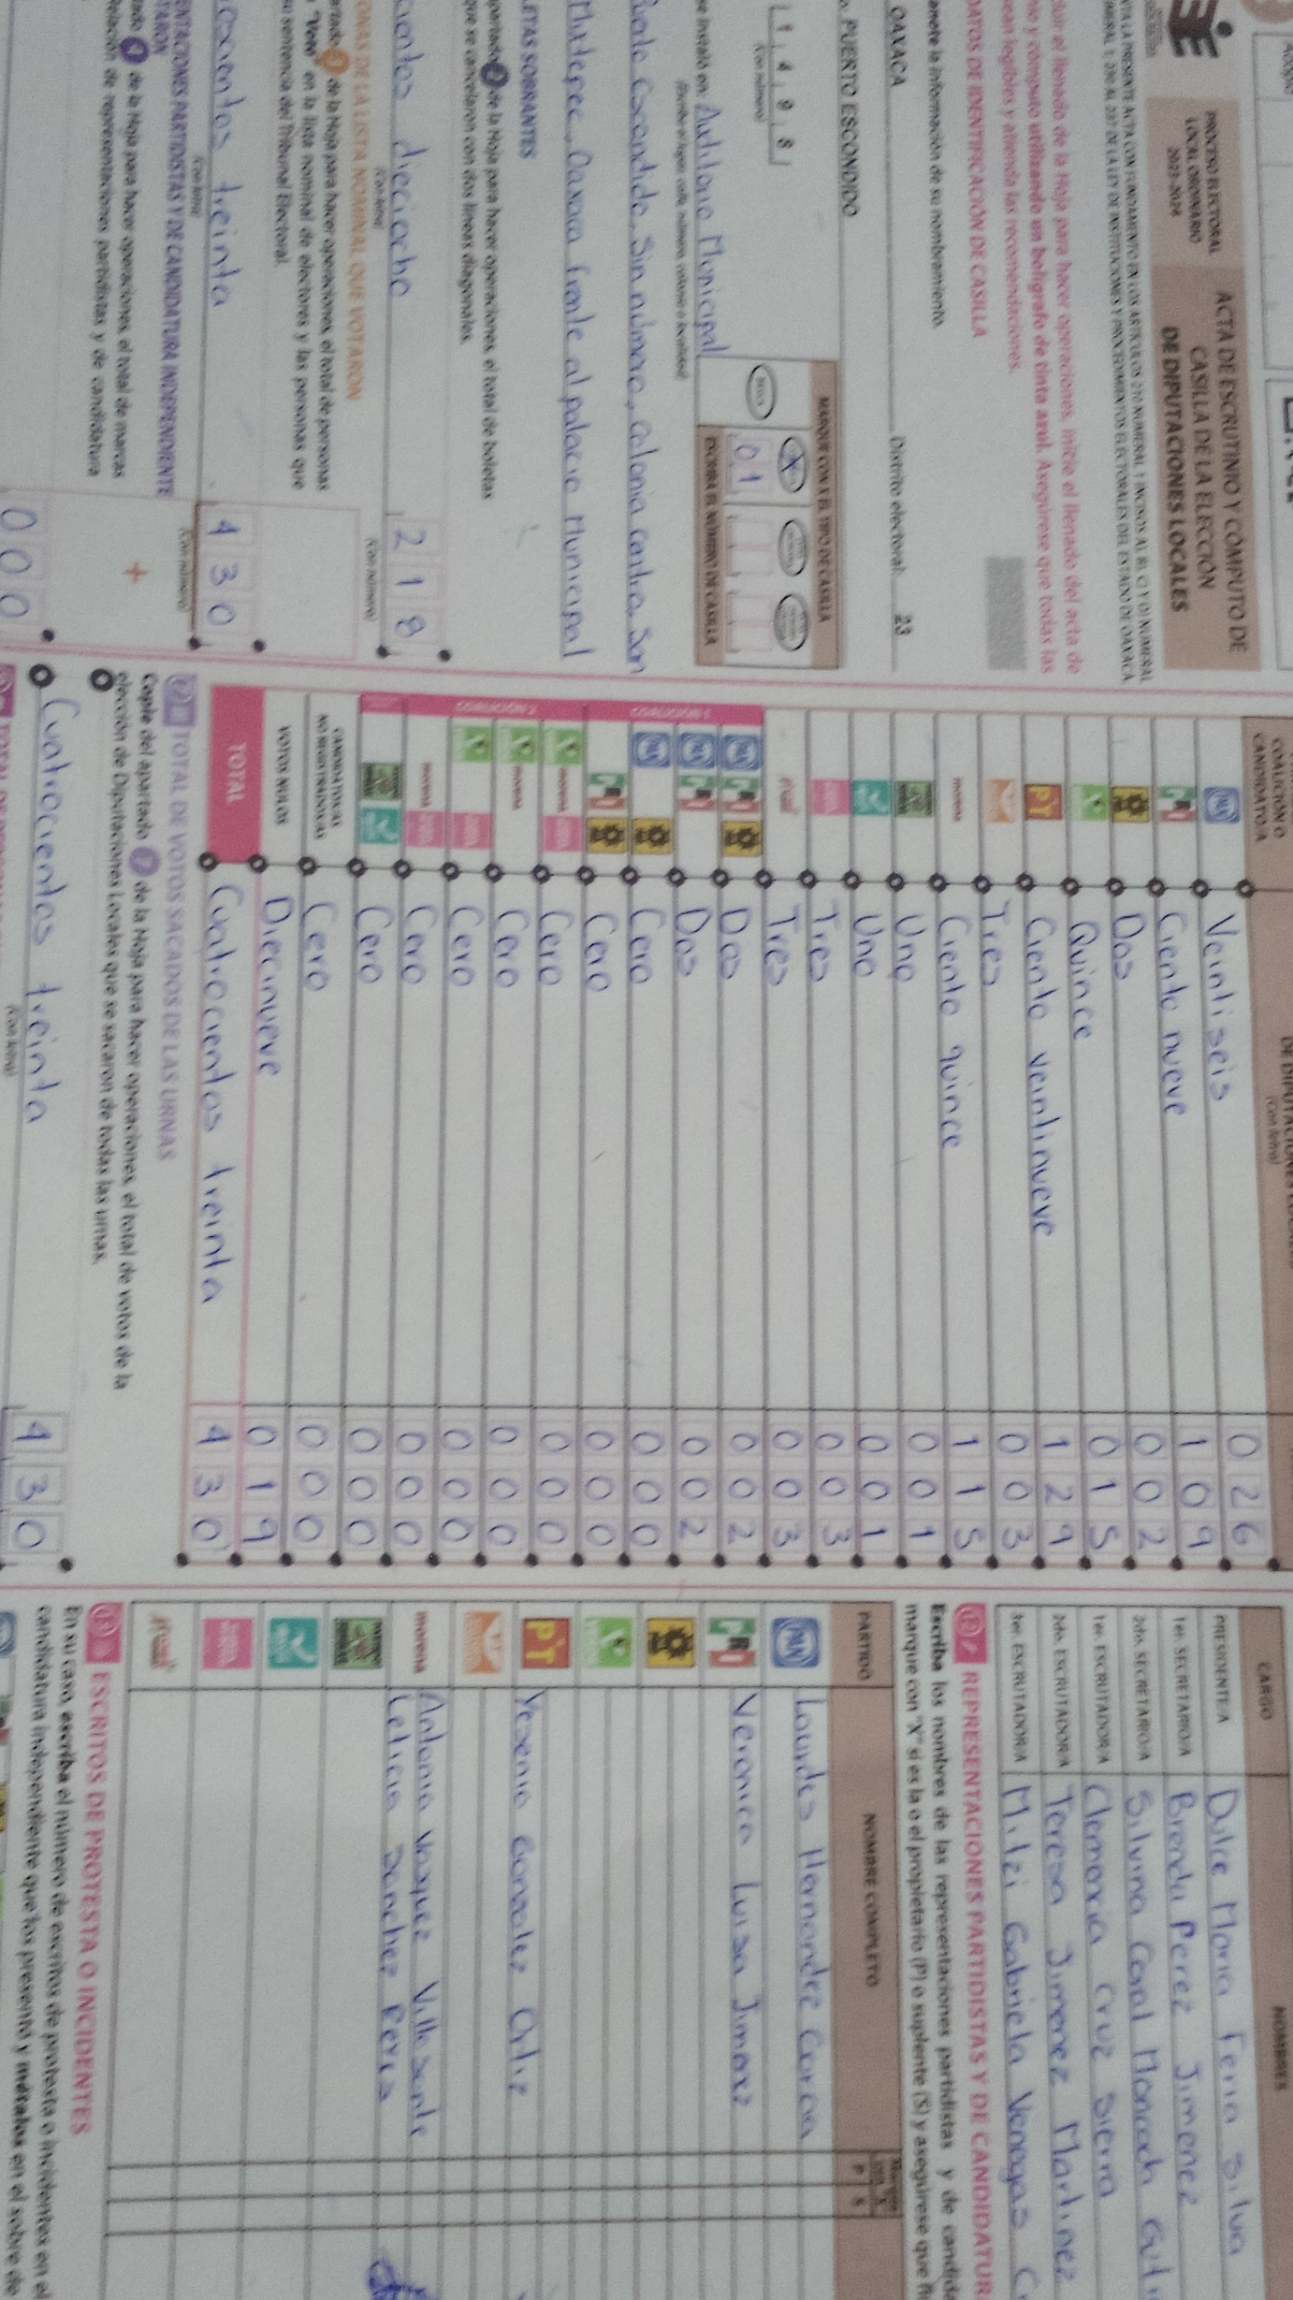 PROCESO ELECTORAL
LOCAL ORDINARIO
2023-2024
ACTA DE ESCRUTINIO Y CÓMPUTO DE
CASILLA DE LA ELECCIÓN
DE DIPUTACIONES LOCALES
el llenado de la Hoja para hacer operaciones, inicie el llenado del acta de
y cómputo utilizando un bolígrafo de tinta azul. Asegúrese que todas las
sean legibles y atienda las recomendaciones.
DATOS DE IDENTIFICACIÓN DE CASILLA
anote la información de su nombramiento.
OAXACA Distrito electoral: 23
PUERTO ESCONDIDO
1 4 9 8
(Con número)
MARQUE CON X EL TIPO DE CASILLA
X
01
ESCRIBA EL NÚMERO DE CASILLA
se instaló en: Auditorio Municipal
Escondido, Sin número, Colonia Centro, San
Mixtepec, Oaxaca frente al palacio Municipal
SOBRANTES
de la Hoja para hacer operaciones, el total de boletas
que se cancelaron con dos líneas diagonales.
cientos dieciocho 218
(Con letra) (Con número)
DE LA LISTA NOMINAL QUE VOTARON
de la Hoja para hacer operaciones, el total de personas
"Votó" en la lista nominal de electores y las personas que
su sentencia del Tribunal Electoral.
treinta 430
(Con letra) (Con número)
PARTIDISTAS Y DE CANDIDATURA INDEPENDIENTE
de la Hoja para hacer operaciones, el total de marcas
Relación de representaciones partidistas y de candidatura
+
000
COALICIÓN O
CANDIDATO/A
(Con letra)
PAN Veintiseis 026
PRI Ciento nueve 109
Dos 002
Quince 015
PT Ciento veintinueve 129
Tres 003
morena Ciento quince 115
Uno 001
Uno 001
Tres 003
Tres 003
COALICIÓN 1
PAN PRI Dos 002
PAN PRI Dos 002
PAN Cero 000
PRI Cero 000
COALICIÓN 2
morena Cero 000
morena Cero 000
Cero 000
morena Cero 000
Cero 000
CANDIDATOS/AS
NO REGISTRADOS/AS Cero 000
VOTOS NULOS Diecinueve 019
TOTAL Cuatrocientos treinta 430
TOTAL DE VOTOS SACADOS DE LAS URNAS
Copie del apartado de la Hoja para hacer operaciones, el total de votos de la
elección de Diputaciones Locales que se sacaron de todas las urnas.
Cuatrocientos treinta 430
(Con letra)
CARGO NOMBRES
PRESIDENTE/A Dulce Maria Feria Silva
1er. SECRETARIO/A Brenda Perez Jimenez
2do. SECRETARIO/A Silvina
1er. ESCRUTADOR/A Clemencia Cruz Sierra
2do. ESCRUTADOR/A Teresa Jimenez Martinez
3er. ESCRUTADOR/A Mitzi Gabriela Venegas
REPRESENTACIONES PARTIDISTAS Y DE CANDIDATUR
Escriba los nombres de las representaciones partidistas y de
marque con "X" si es la o el propietario (P) o suplente (S) y asegúrese que
PARTIDO NOMBRE COMPLETO P S
PAN Lourdes Hernandez Garcia
PRI Veronica Luisa Jimenez
PT Yesenia Gonzalez Ortiz
morena Antonia Vasquez Villasante
Leticia Sanchez Reyes
ESCRITOS DE PROTESTA O INCIDENTES
En su caso, escriba el número de escritos de protesta o incidentes en el
candidatura independiente que los presentó y métalos en el sobre de